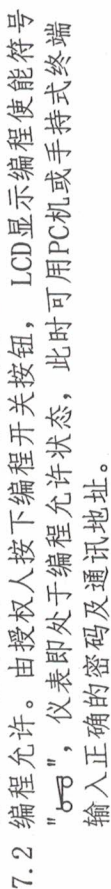 7.2 编程允许。由授权人按下编程开关按钮， LCD显示编程使能符号
" "，仪表即处于编程允许状态，此时可用PC机或手持式终端
输入正确的密码及通讯地址。